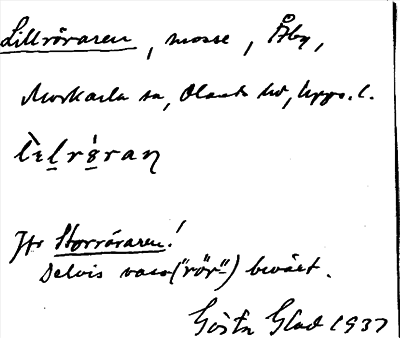 Lillröraren, mosse, Åby,
Morkarla sn, Olands hd, Upps. l.
lèlrö́raɳ
Jfr Storröraren!
Delvis vass ("rör") beväxt.
Gösta Glad 1937